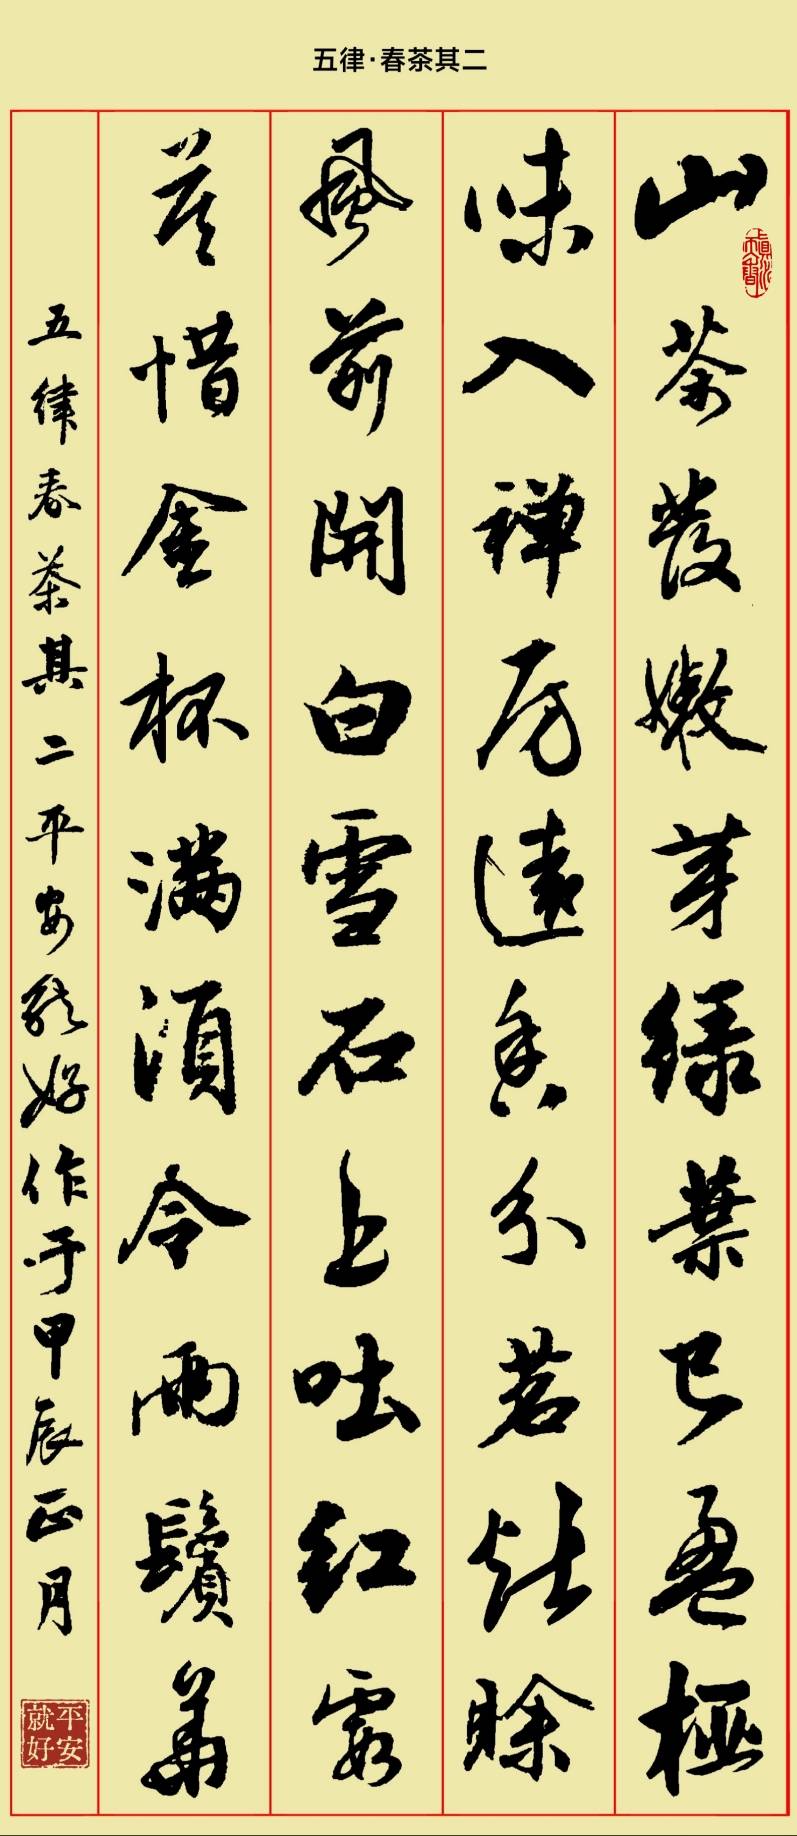 五律·春茶其二
山茶發嫩芽綠葉已盈椏
味入禪房遠香分茗灶賒
風前開白雪石上吐紅霞
莫惜金杯滿須令兩鬢華
五律春茶其二平安就好作于甲辰正月
平安
就好